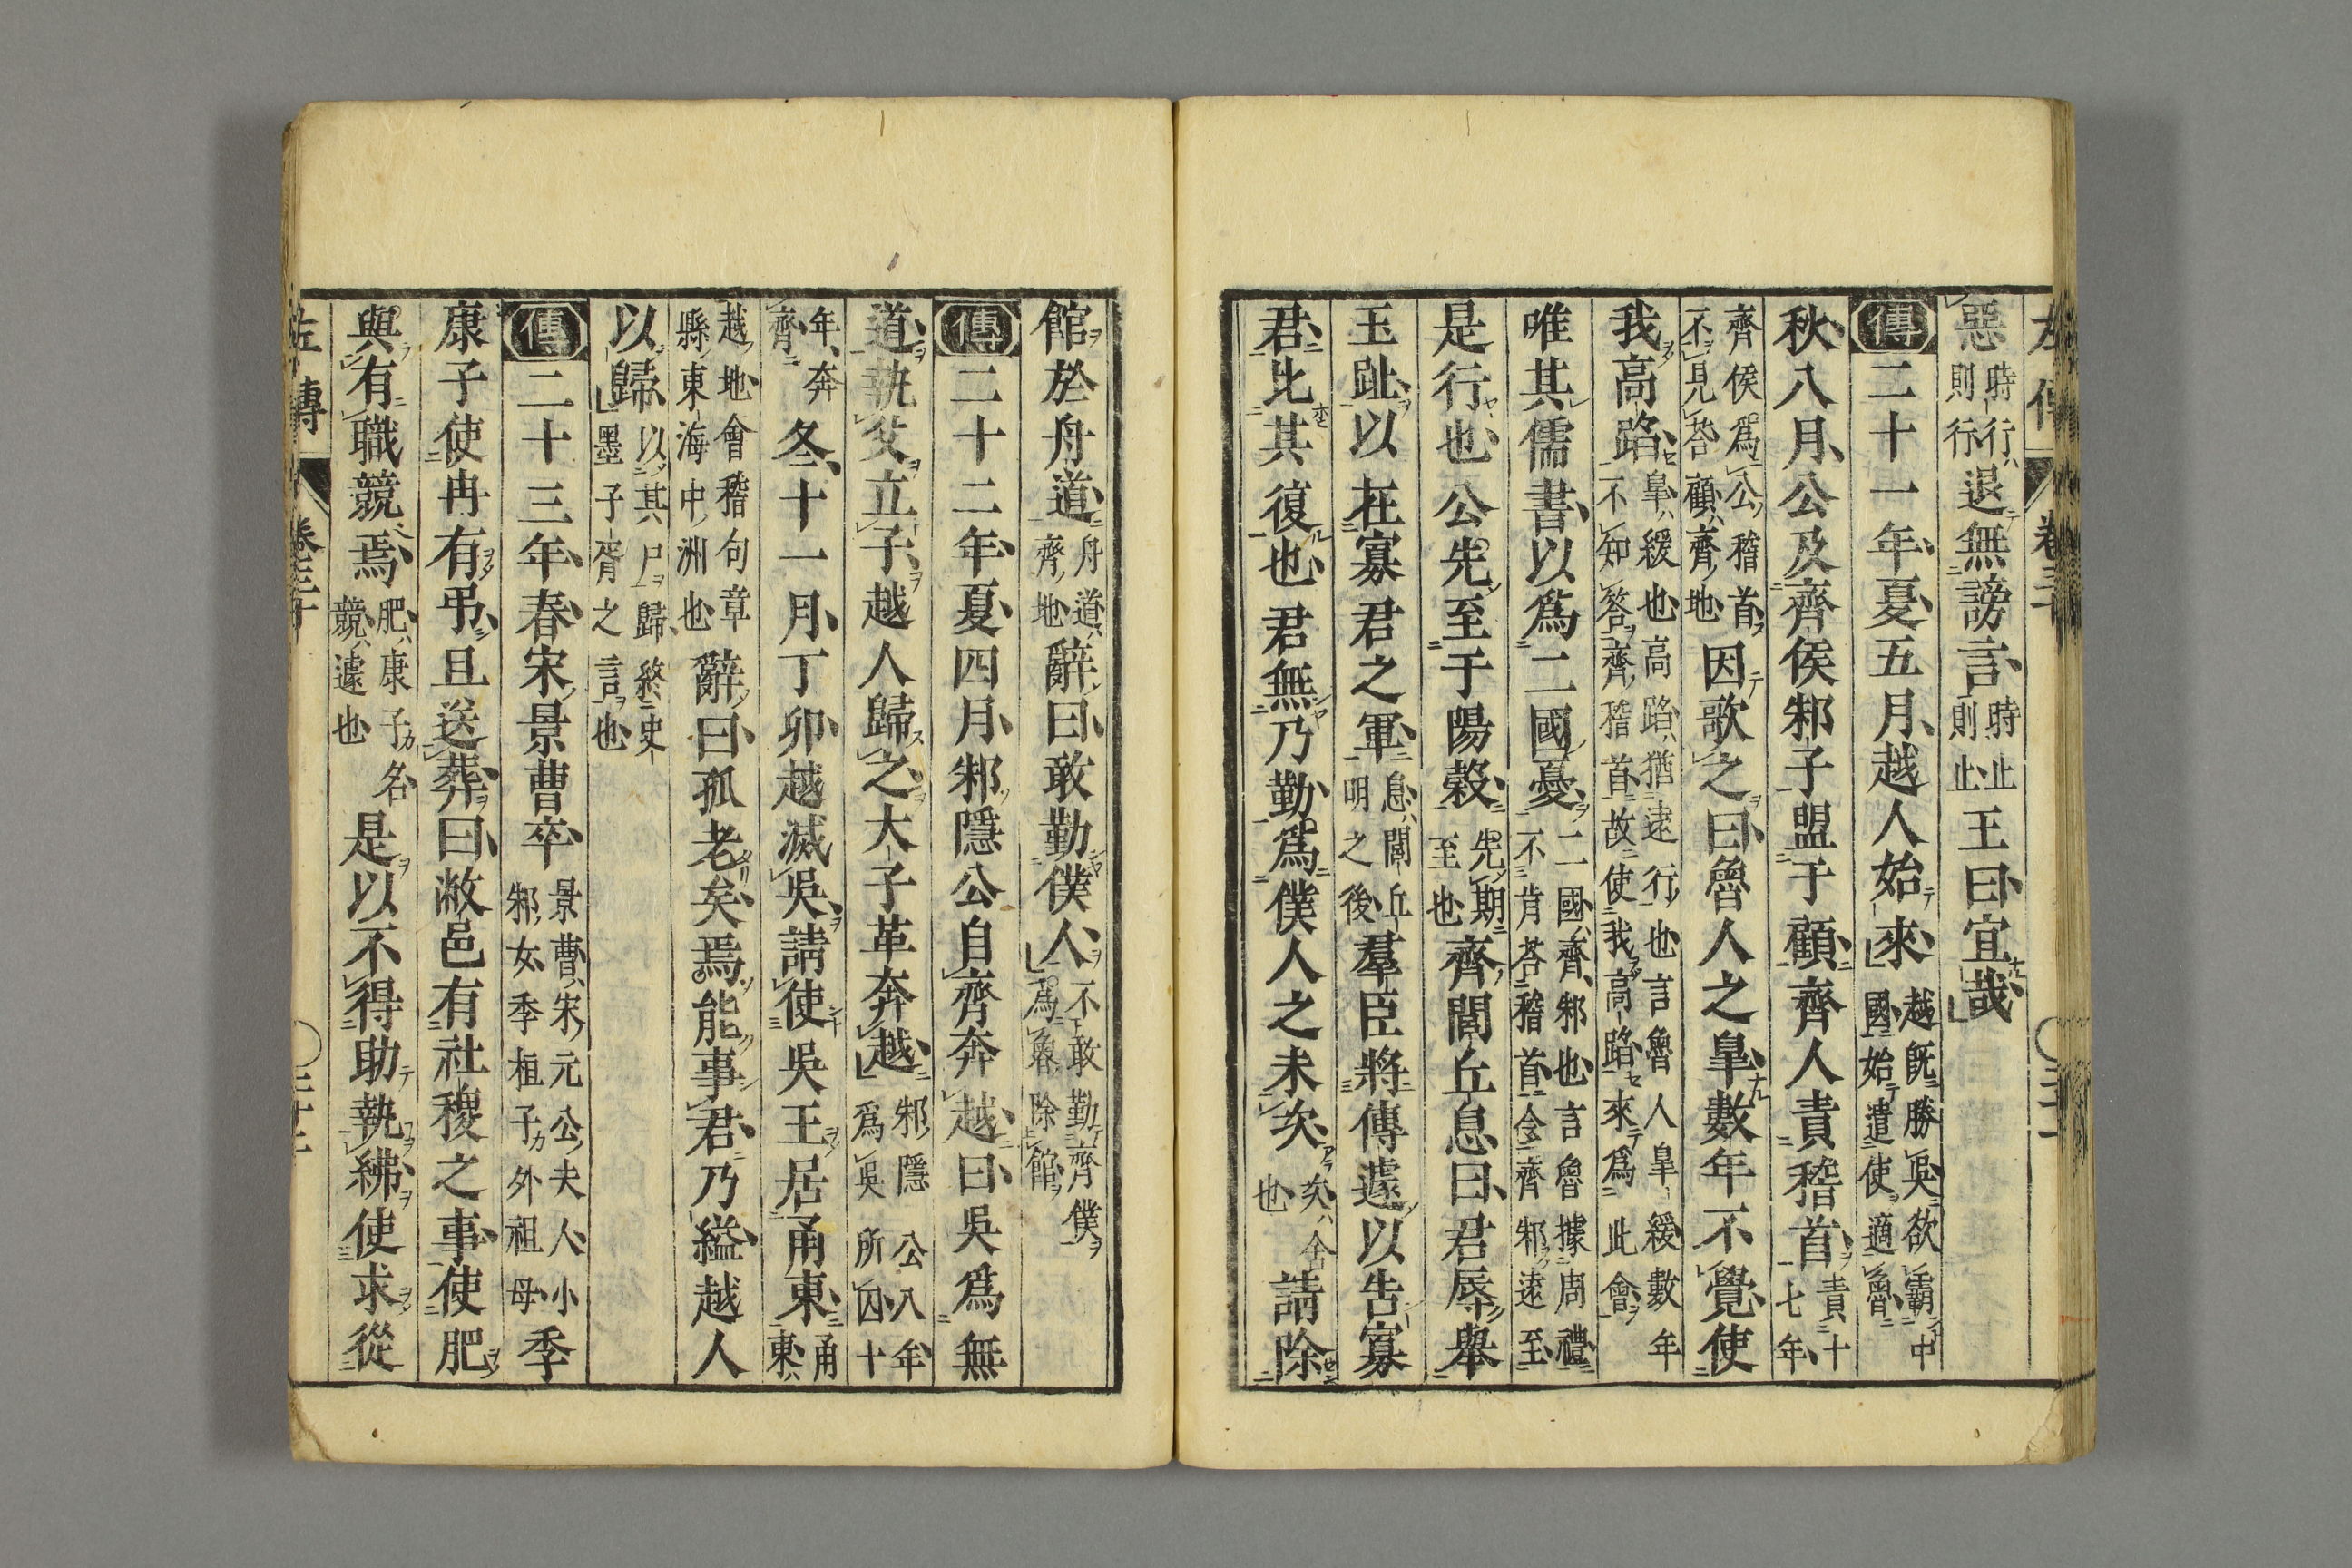 左傳 卷三十
惡時行則行退無謗言時止則止王曰宜哉
傳二十一年夏五月越人始來越既勝吳欲霸中國始遣使適魯
秋八月公及齊侯邾子盟于顧齊人責稽首責十七年
齊侯爲公稽首不見荅顧齊地因歌之曰魯人之皐數年不覺使
我高蹈皐緩也高蹈猶遠行也言魯人皐緩數年不知答齊稽首故使我高蹈來爲此會
唯其儒書以爲二國憂二國齊邾也言魯據周禮不肯荅稽首令齊邾遠至
是行也公先至于陽穀先期至也齊閭丘息曰君辱舉
玉趾以在寡君之軍息閭丘明之後羣臣將傳遽以告寡
君比其復也君無乃勤爲僕人之未次次舍也請除
館於舟道舟道齊地辭曰敢勤僕人不敢勤齊僕爲魯除館
傳二十二年夏四月邾隱公自齊奔越曰吳爲無
道執父立子越人歸之大子革奔越邾隱公八年爲吳所囚十
年奔齊冬十一月丁卯越滅吳請使吳王居甬東甬東
越地會稽句章縣東海中洲也辭曰孤老矣焉能事君乃縊越人
以歸以其尸歸終史墨子胥之言也
傳二十三年春宋景曹卒景曹宋元公夫人小邾女季桓子外祖母季
康子使冉有弔且送葬曰敝邑有社稷之事使肥
與有職競焉肥康子名競遽也是以不得助執紼使求從
左傳 卷三十